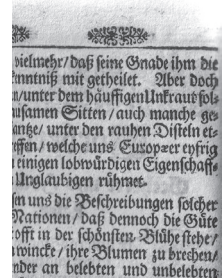 vielmehr/daß seine Gnade ihm die
nntniß mit getheilet. Aber doch
n/unter dem häuffigen Unkraut sol⸗
samen Sitten/auch manche ge⸗
unter den rauhen Disteln et⸗
ffen/welche uns Europæer eyfrig
einigen lobwürdigen Eigenschaff⸗
Unglaubigen rühmet.
en uns die Beschreibungen solcher
Nationen/daß dennoch die Güte
offt in der schönsten Blühe stehe/
wincke/ihre Blumen zu brechen/
nder an belebten und unbelebten